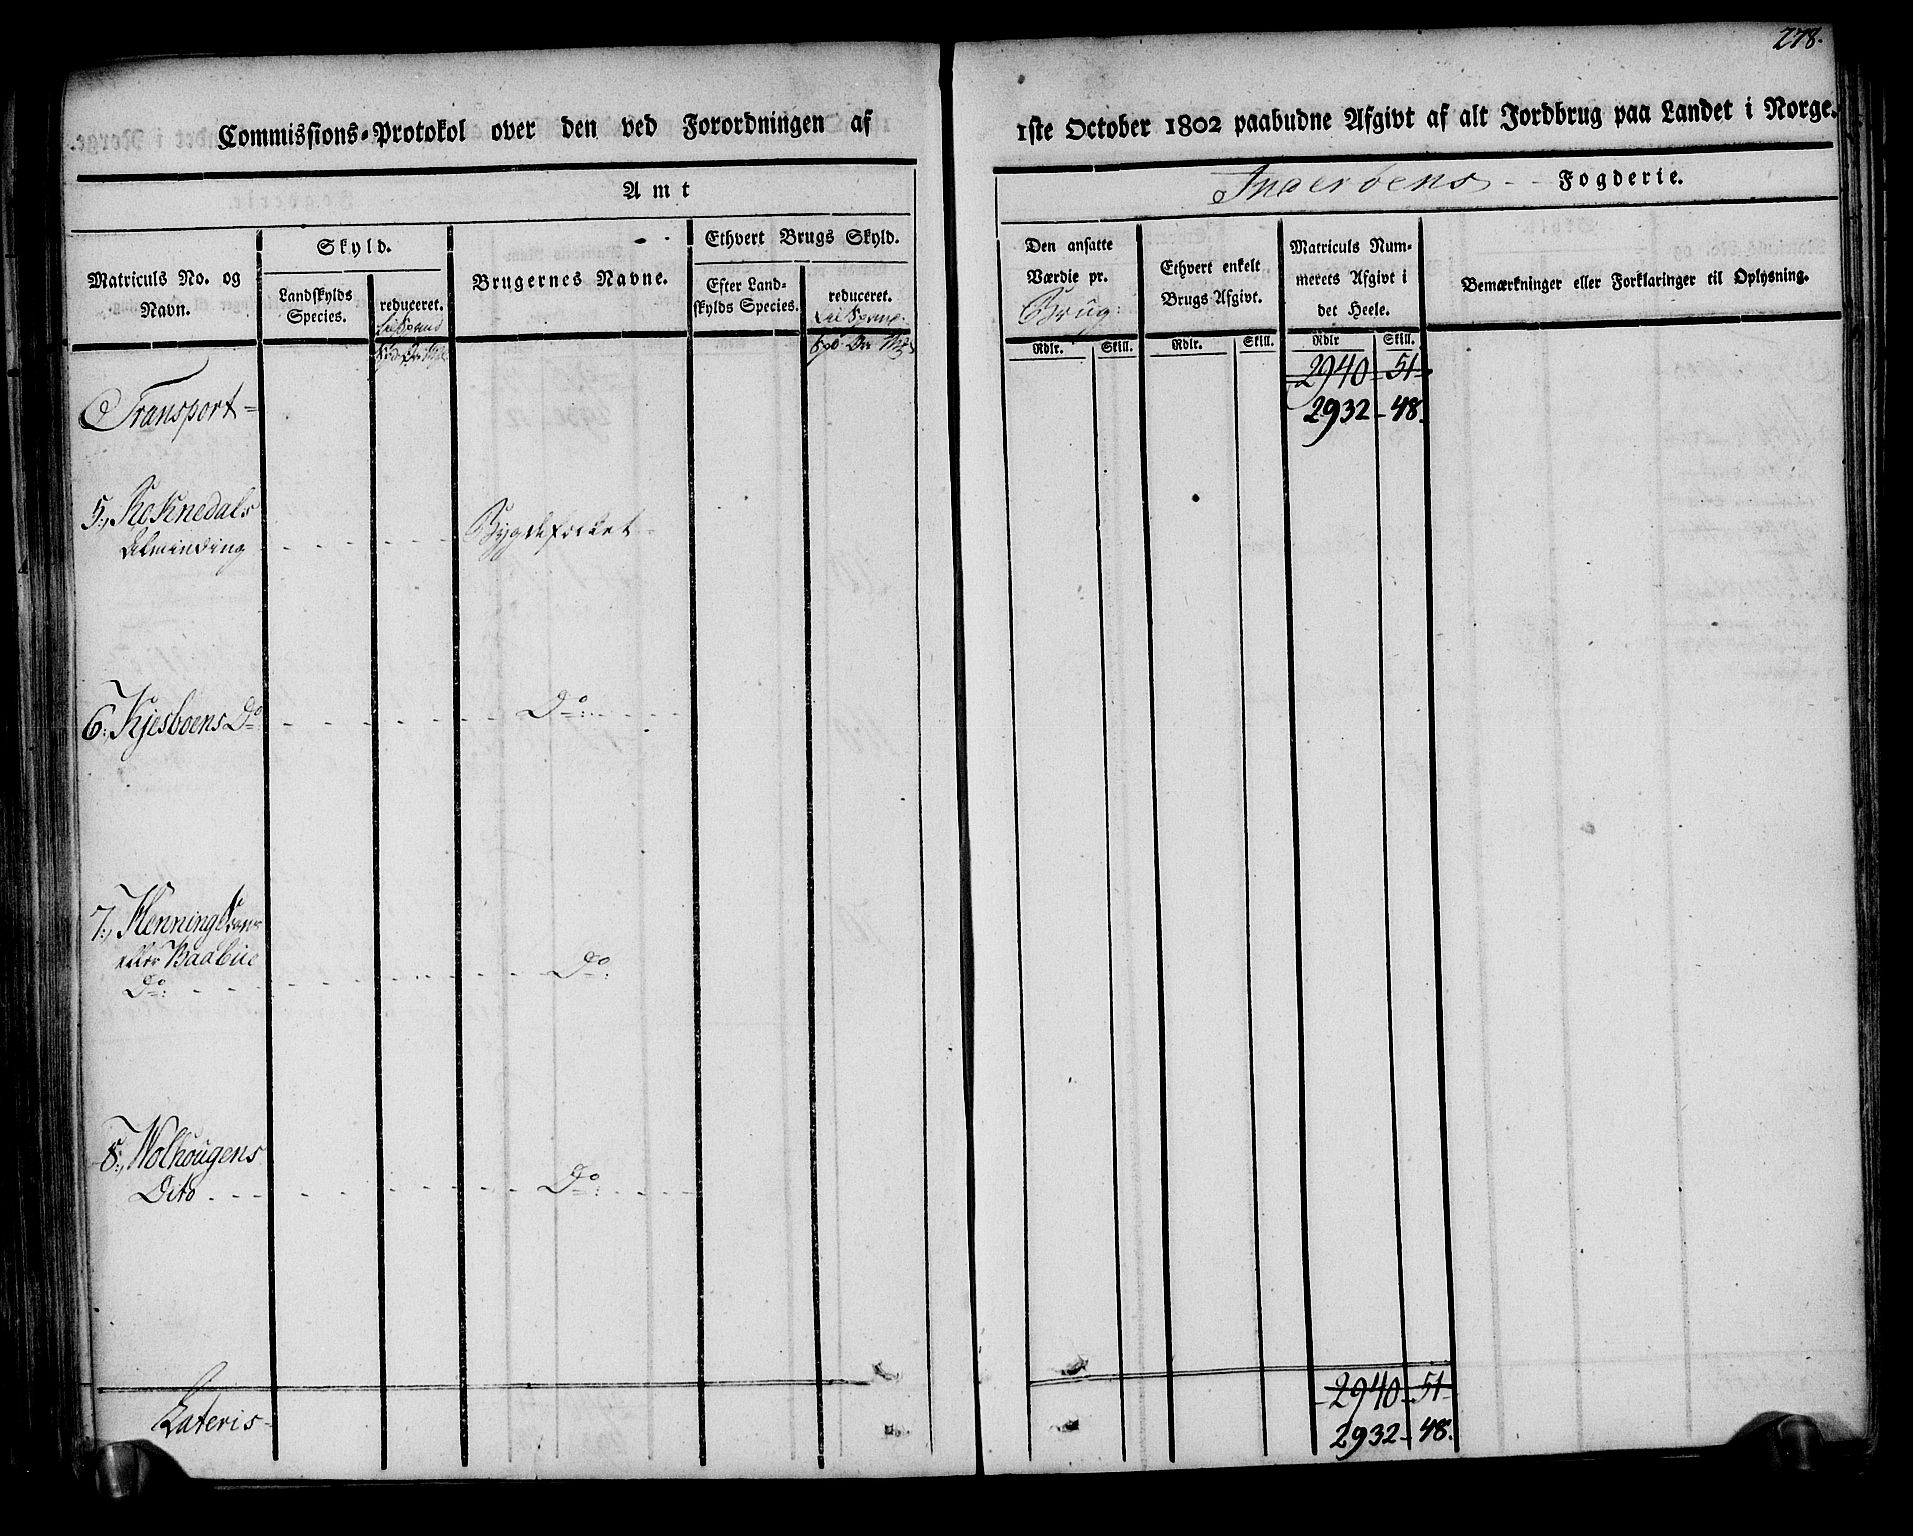 278.
Commissions-Protokol over den ved Forordningen af
1ste October 1802 paabudne Afgivt af alt Jordbrug paa Landet i Norge.
Amt
Inderöens Fogderie.
Matriculs No. og
Navn.
Skyld.
Landskylds
Species.
reduceret.
Brugernes Navne.
Ethvert Brugs Skyld.
Efter Land-
skylds Species.
reduceret.
Den ansatte
Værdie pr.
Brug:
Ethvert enkelt
Brugs Afgivt.
Matriculs Num-
merets Afgivt i
det Heele.
Bemærkninger eller Forklaringer til Oplysning.
Rdlr. Skill.
Rdlr. Skill.
Rdlr Skill.
2940 - 51 -
Transport = 2932 - 48.
5., Roknedals
Alminding - - - - - Bygdefolket -
6., Kjesboens Do - - - - - - Do: - - -
7., Henning
eller Baabue
Do: - - - - - - - - Do:
8., Wolhougens
Dito - - - - - - - Do: - - - -
- 2940 - 51 -
Lateris - 2932 - 48.